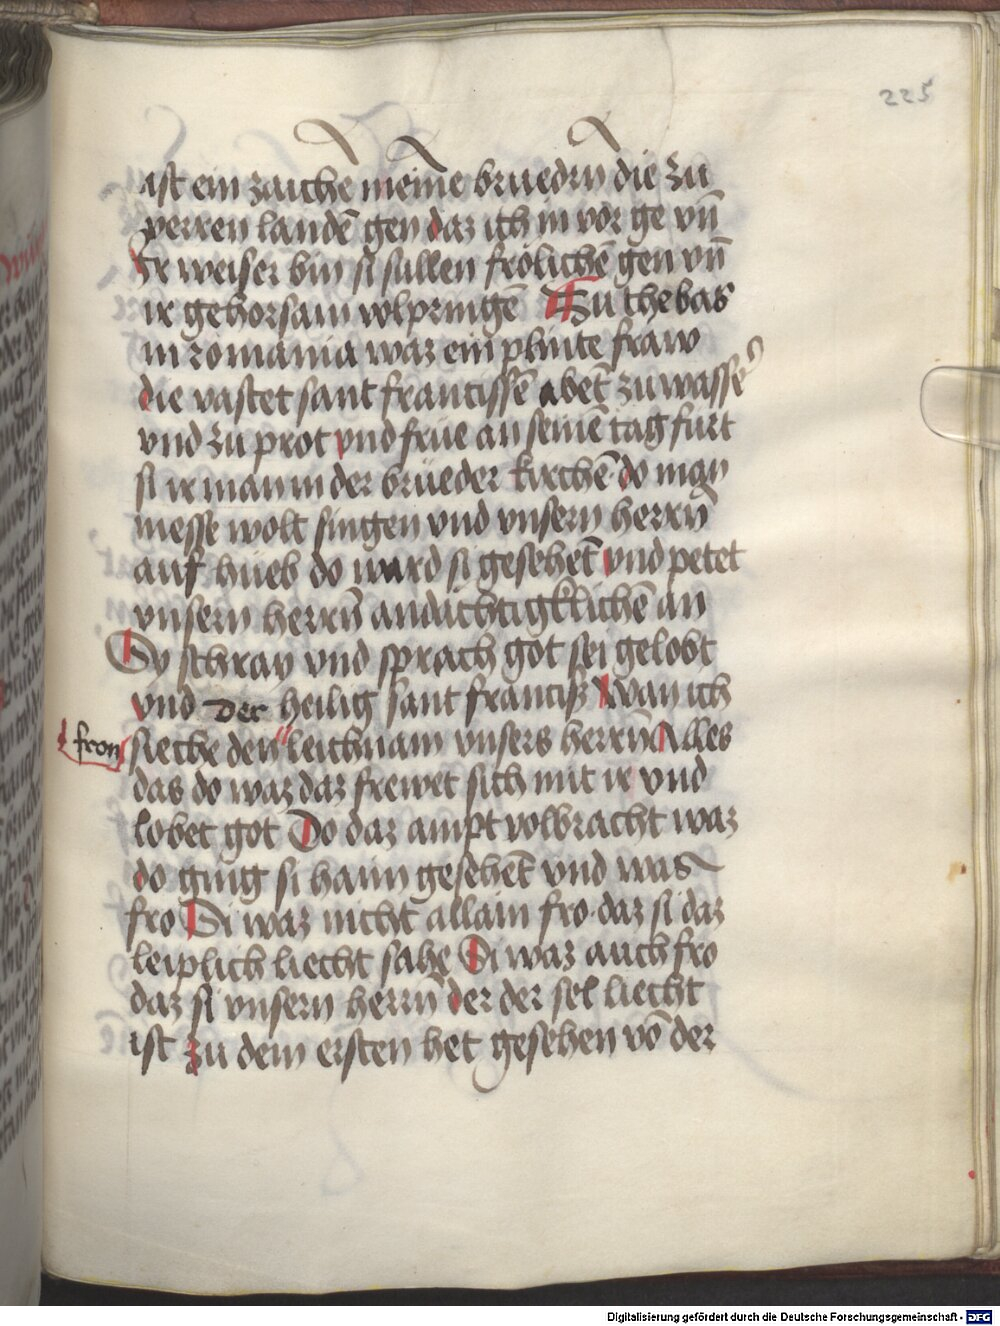 225
ist ein zaichē meinē bruedrn̄ die zu
verren landē gen daz ich in vor ge vn̄
Ir weiser bin si sullen frölichē gen vn̄
ir gehorsam volpringē Zu thebas
in romania waz ein plinte fraw
die vastet sant francissē abet̄ zu wassē
vnd zu prot vnd frue an seinē tag furt
si ir man in der brueder kirchē do man
messe wolt singen vnd vnsern herrn̄
auf hueb do ward si gesehet̄ vnd petet
vnsern herrn̄ andachtigklichē an
Sy schray vnd sprach got sei gelobt
vnd Der heilig sant francisß Wan ich
fron
sieche den leichnam vnsers herrn̄ Alles
das do waz daz frewet sich mit ir vnd
lobet got Do daz ampt volbracht waz
do ging si haim gesehet̄ vnd was
fro Si waz nicht allain fro daz si daz
leiplich liecht sahe Si waz auch fro
daz si vnsern herrn̄ der der sel liecht
ist zu dem ersten het gesehen vō der
Digitalisierung gefördert durch die Deutsche Forschungsgemeinschaft - DFG